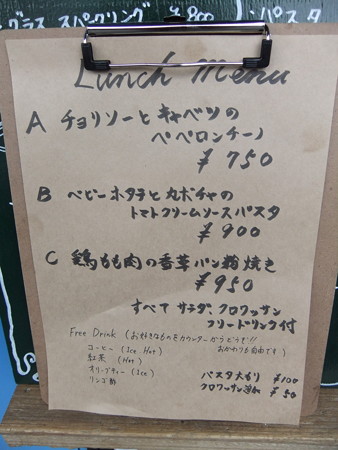 グラス スパークリング ¥800
パスタ
Lunch Menu
A チョリソーとキャベツの
ペペロンチーノ
¥750
B ベビーホタテと丸ボチャの
トマトクリームソースパスタ
¥900
C 鶏もも肉の香草パン粉焼き
¥950
すべて サラダ、クロワッサン
フリードリンク付
Free Drink (お好きなものをカウンターからどうぞ!!
おかわりも自由です)
コーヒー (Ice Hot)
紅茶 (Hot)
オリーブティー (Ice)
リンゴ酢
パスタ大もり ¥100
クロワッサン追加 ¥50